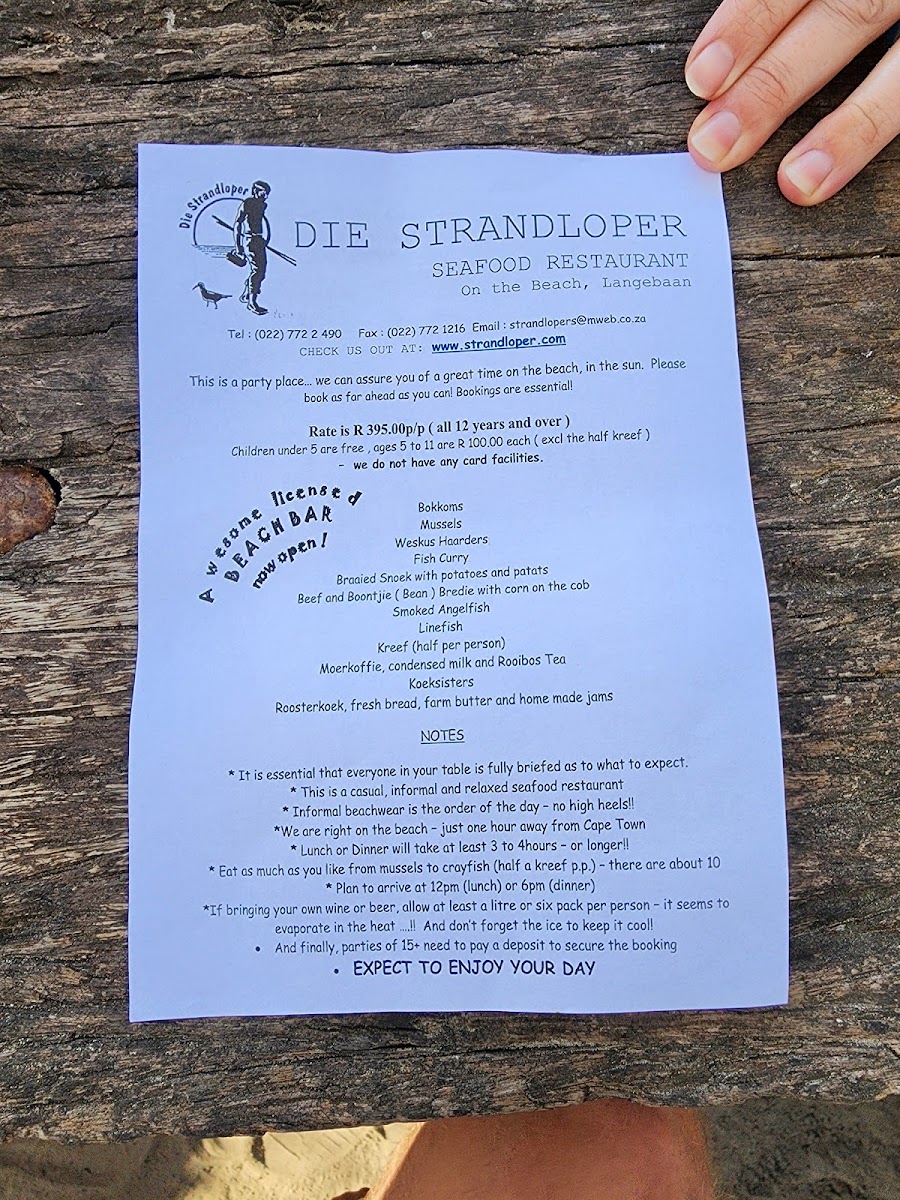 Die Strandloper
DIE STRANDLOPER
SEAFOOD RESTAURANT
On the Beach, Langebaan
Tel : (022) 772 2 490 Fax : (022) 772 1216 Email : strandlopers@mweb.co.za
CHECK US OUT AT: www.strandloper.com
This is a party place... we can assure you of a great time on the beach, in the sun. Please
book as far ahead as you can! Bookings are essential!
Rate is R 395.00p/p ( all 12 years and over )
Children under 5 are free , ages 5 to 11 are R 100.00 each ( excl the half kreef )
- we do not have any card facilities.
Awesome licensed
BEACH BAR
now open!
Bokkoms
Mussels
Weskus Haarders
Fish Curry
Braaied Snoek with potatoes and patats
Beef and Boontjie ( Bean ) Bredie with corn on the cob
Smoked Angelfish
Linefish
Kreef (half per person)
Moerkoffie, condensed milk and Rooibos Tea
Koeksisters
Roosterkoek, fresh bread, farm butter and home made jams
NOTES
* It is essential that everyone in your table is fully briefed as to what to expect.
* This is a casual, informal and relaxed seafood restaurant
* Informal beachwear is the order of the day – no high heels!!
*We are right on the beach – just one hour away from Cape Town
* Lunch or Dinner will take at least 3 to 4hours – or longer!!
* Eat as much as you like from mussels to crayfish (half a kreef p.p.) – there are about 10
* Plan to arrive at 12pm (lunch) or 6pm (dinner)
*If bringing your own wine or beer, allow at least a litre or six pack per person – it seems to
evaporate in the heat ....!! And don't forget the ice to keep it cool!
• And finally, parties of 15+ need to pay a deposit to secure the booking
• EXPECT TO ENJOY YOUR DAY